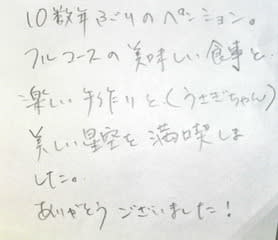 10数年ぶりのペンション。
フルコースの美味しい食事と
楽しい手作りと(うさぎちゃん)
美しい星空を満喫しま
した。
ありがとうございました!